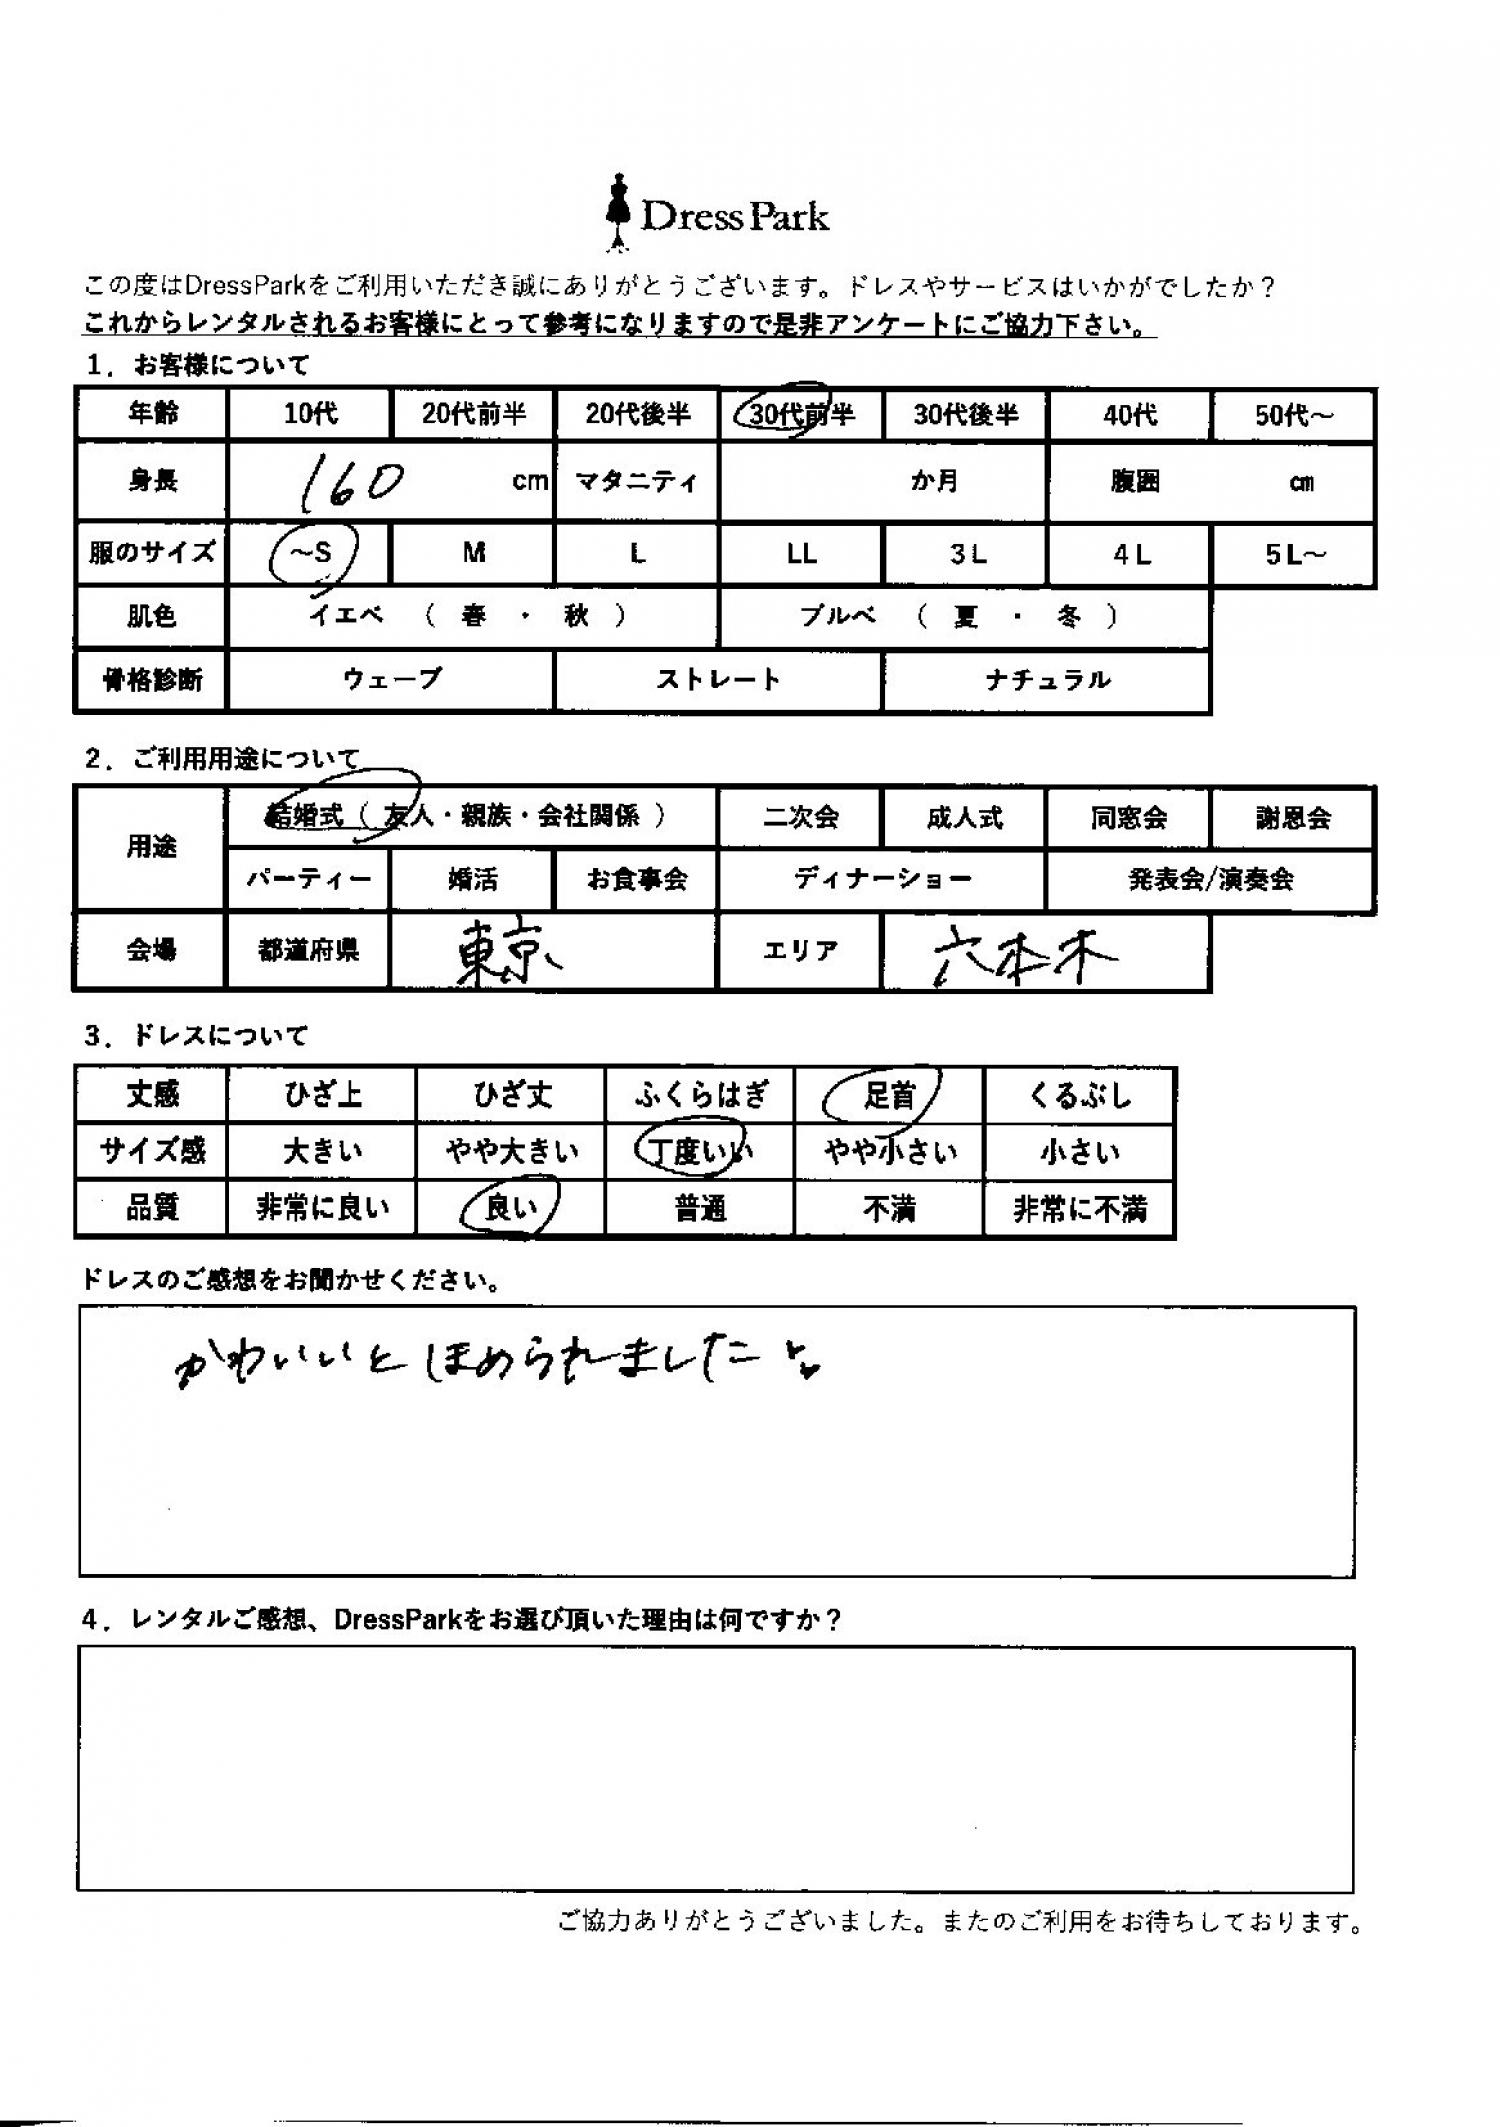 Dress Park
この度はDressParkをご利用いただき誠にありがとうございます。ドレスやサービスはいかがでしたか？
これからレンタルされるお客様にとって参考になりますので是非アンケートにご協力下さい。
1．お客様について
年齢 10代 20代前半 20代後半 30代前半 30代後半 40代 50代～
身長 160 cm マタニティ か月 腹囲 cm
服のサイズ ～S M L LL 3L 4L 5L～
肌色 イエベ （ 春 ・ 秋 ） ブルベ （ 夏 ・ 冬 ）
骨格診断 ウェーブ ストレート ナチュラル
2．ご利用用途について
用途 結婚式（ 友人・親族・会社関係 ） 二次会 成人式 同窓会 謝恩会
パーティー 婚活 お食事会 ディナーショー 発表会/演奏会
会場 都道府県 東京 エリア 六本木
3．ドレスについて
丈感 ひざ上 ひざ丈 ふくらはぎ 足首 くるぶし
サイズ感 大きい やや大きい 丁度いい やや小さい 小さい
品質 非常に良い 良い 普通 不満 非常に不満
ドレスのご感想をお聞かせください。
かわいいと ほめられました
4．レンタルご感想、DressParkをお選び頂いた理由は何ですか？
ご協力ありがとうございました。またのご利用をお待ちしております。